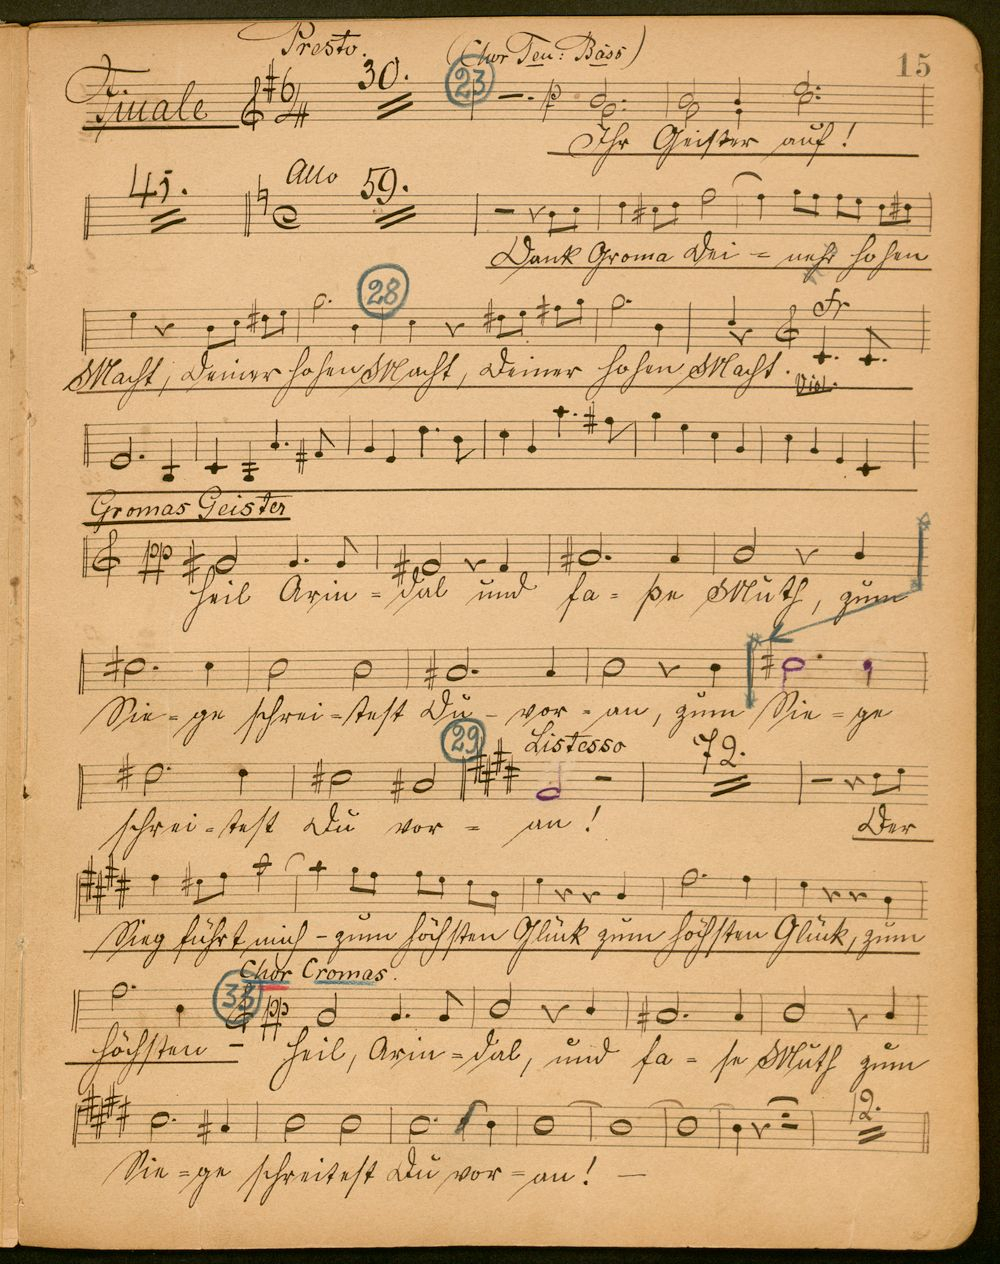 Presto. (Chor Ten: Bäss) 15
Finale 6/4 30. 23
Ihr Geister auf!
45. Allo 59.
Dank Groma Dei = nehr hohen
28 Fr
Macht, Deiner hohen Macht, Deiner hohen Macht. Viol.
Gromas Geister
pp
Heil Arin = dal und fa = ße Muth, zum
Sie = ge schrei = test Du - vor = an, zum Sie = ge
29 Listesso 72.
schrei = test Du vor = an! Der
Sieg führt mich - zum höchsten Glück zum höchsten Glück, zum
33 Chor Cromas.
pp
höchsten - Heil, Arin = dal, und fa = se Muth zum
12.
Sie = ge schreitest Du vor = an! —